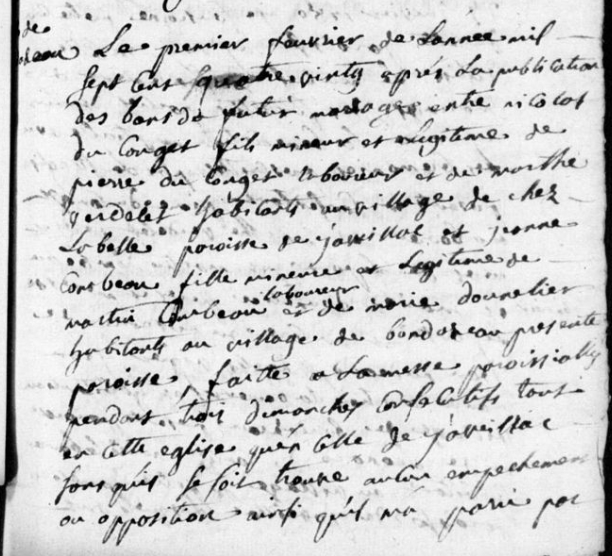 de
Le premier fevrier de Lannee mil
sept cens quatre vingt après La publication
des bans de futur mariage entre nicolas
du Conget fils mineur et Legitime de
pierre du Conget Laboureur et de marthe
verdelet habitants au village de chez
Labelle paroisse de javeillac et jeanne
Combeau fille mineure et Legitime de
laboureur
martin Combeau et de marie dounelier
habitants au village de presente
paroisse, faitte a La messe paroissialle
pendant trois dimanches Consecutifs tant
en cette eglise qu'en celle de javeillac
sans qu'il se soit trouvé aucun empechement
ou opposition ainsi qu'il m'a paru par